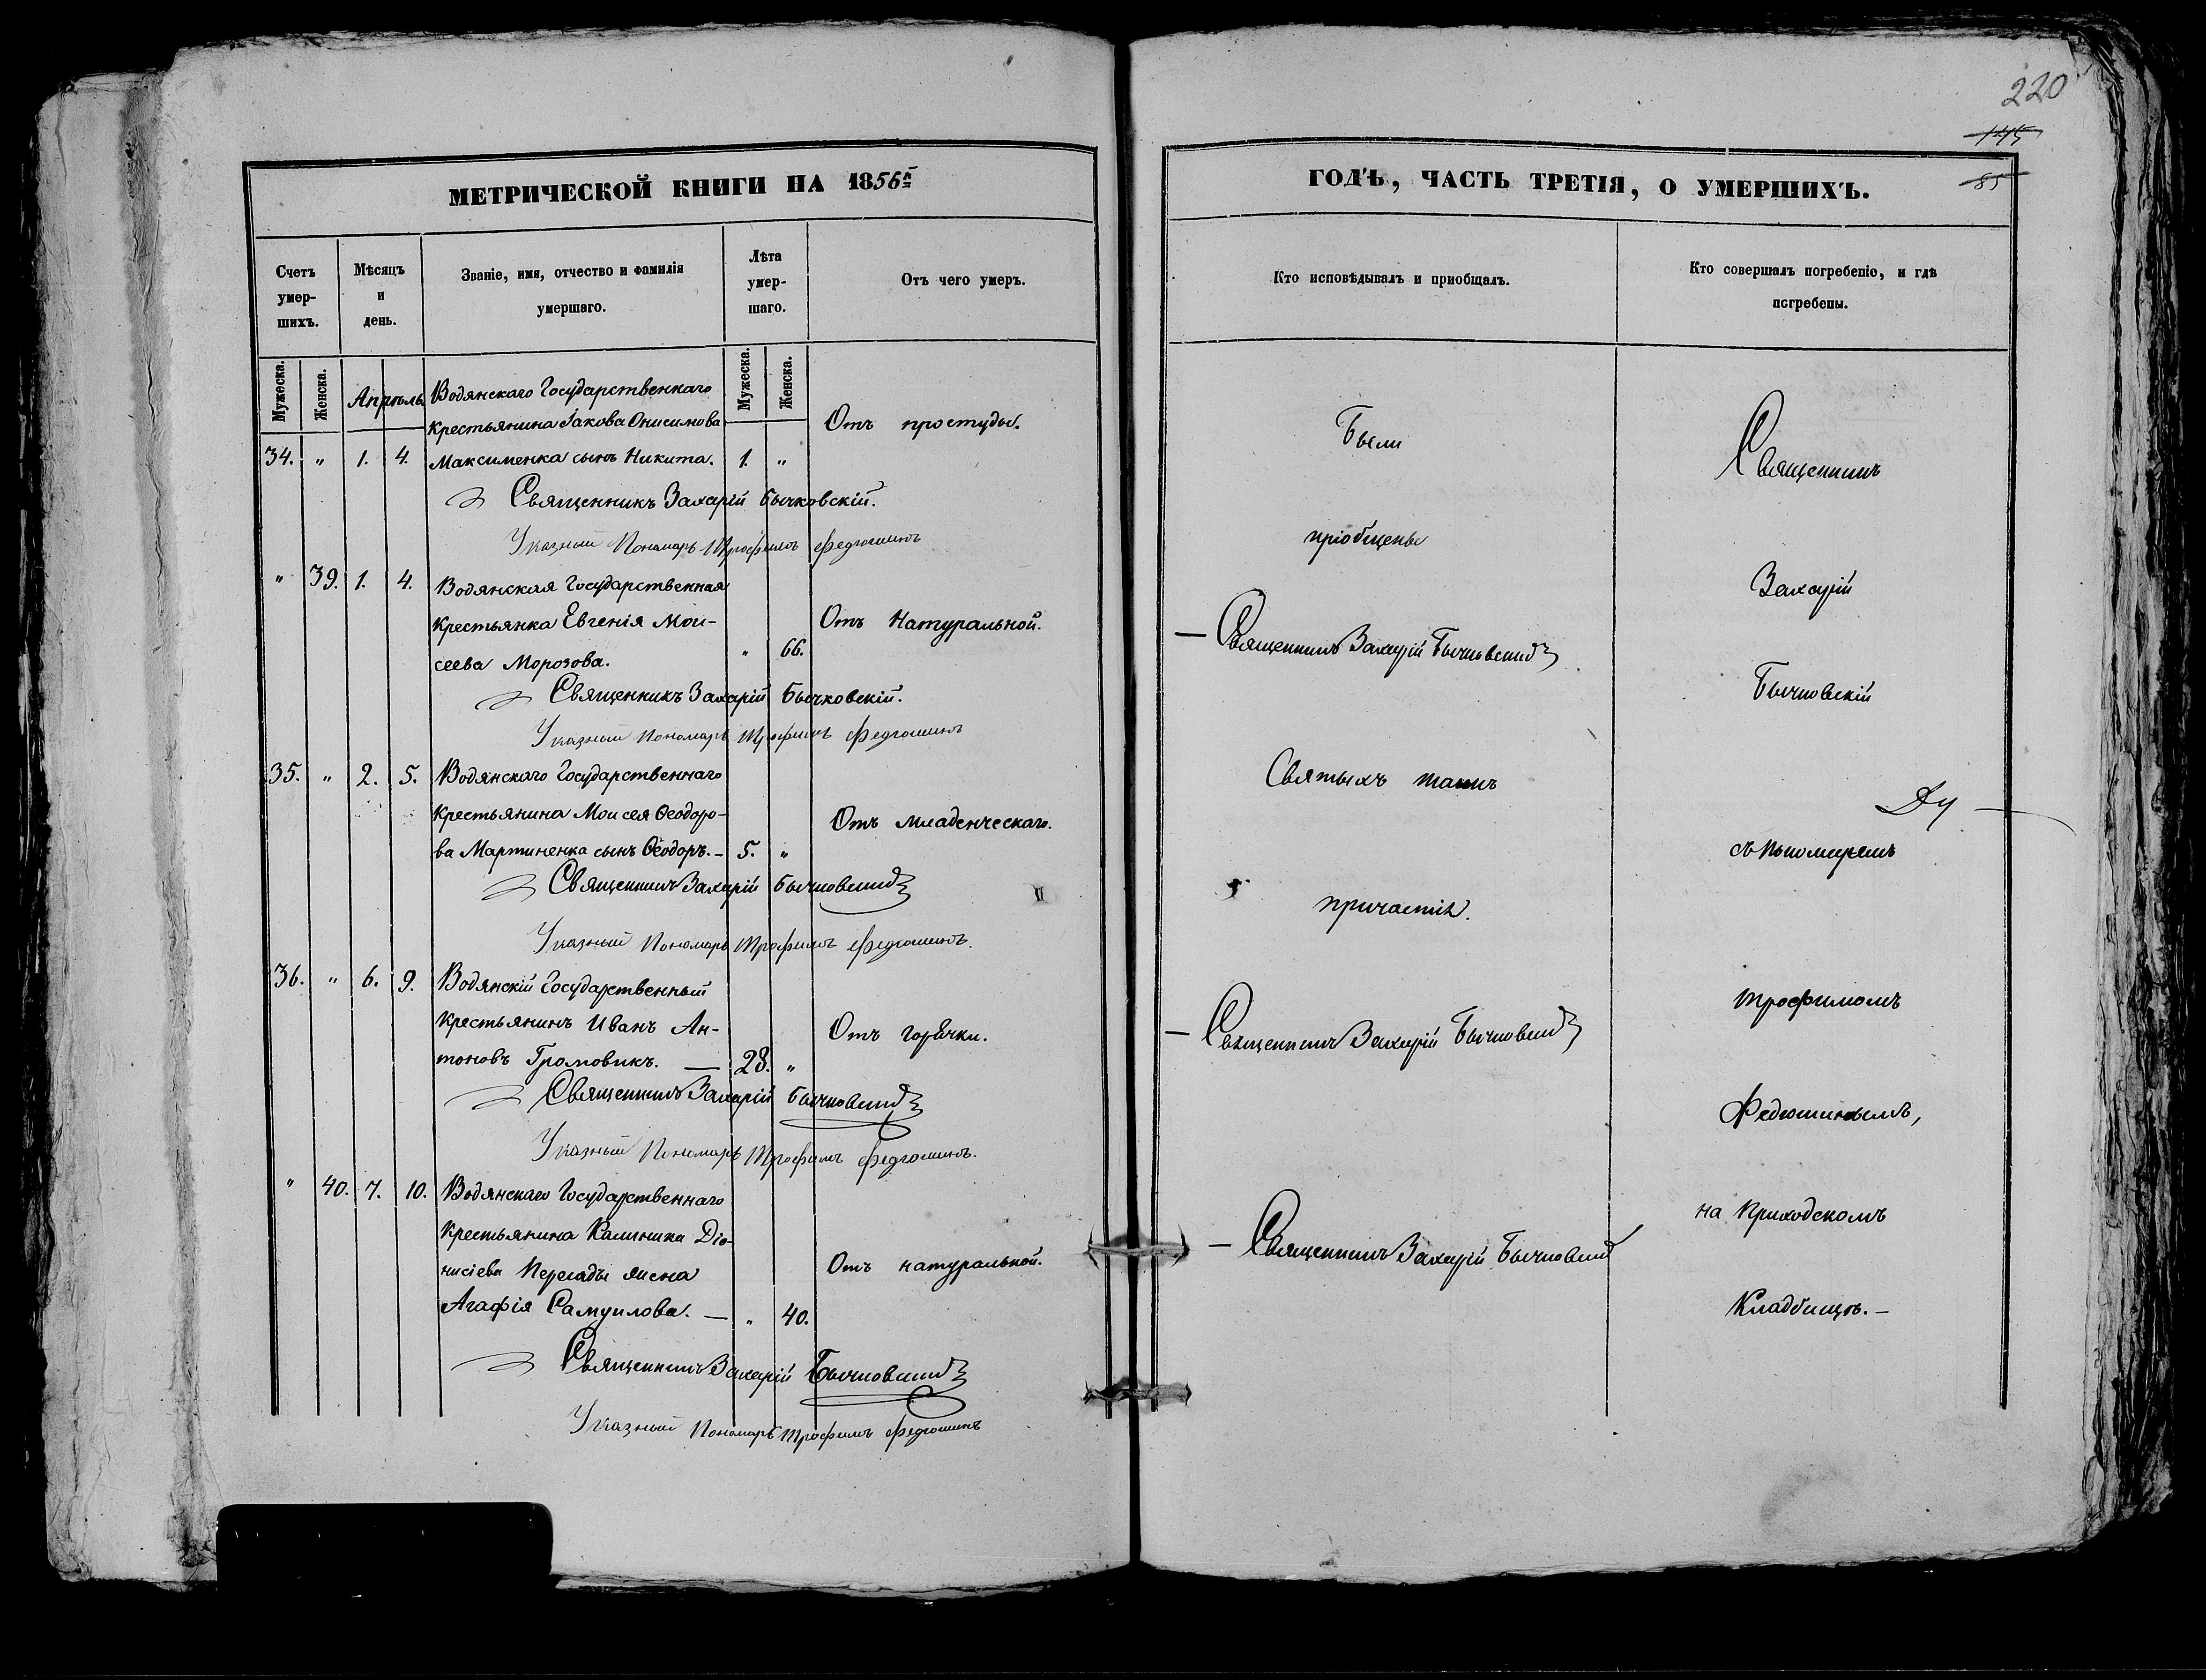 220
145
85
МЕТРИЧЕСКОЙ КНИГИ НА 1856й
Счетъ умер-шихъ.
Мѣсяцъ и день.
Званіе, имя, отчество и фамилія умершаго.
Лѣта умер-шаго.
Отъ чего умеръ.
Мужеска.
Женска.
Апрѣль
Мужеска.
Женска.
Водянскаго Государственнаго
крестьянина Іакова Онисимова
Отъ простуды.
34. " 1. 4. Максименка сынъ Никита. 1. "
Священникъ Захарій Бычковскій.
Указный Пономарь Трофимъ Федюшинъ
" 39. 1. 4. Водянская Государственная
крестьянка Евгенія Мои-
Отъ Натуральной.
сеева Морозова. " 66.
Священникъ Захарій Бычковскій.
Указный Пономарь Трофимъ Федюшинъ
35. " 2. 5. Водянскаго Государственнаго
крестьянина Моисея Ѳеодоро-
Отъ младенческаго.
ва Мартиненка сынъ Ѳеодоръ. - 5. "
Священникъ Захарій Бычковскій
Указный Пономарь Трофимъ Федюшинъ.
36. " 6. 9. Водянскій Государственный
крестьянинъ Иванъ Ан-
Отъ горячки.
тоновъ Громовикъ. — 28. "
Священникъ Захарій Бычковскій
Указный Пономарь Трофимъ Федюшинъ.
" 40. 7. 10. Водянскаго Государственнаго
крестьянина Калиника Діо-
нисіева Перегады жена
Отъ натуральной.
Агафія Самуилова. — " 40.
Священникъ Захарій Бычковскій
Указный Пономарь Трофимъ Федюшинъ
ГОДЪ, ЧАСТЬ ТРЕТІЯ, О УМЕРШИХЪ.
Кто исповѣдывалъ и приобщалъ.
Кто совершалъ погребеніе, и гдѣ
погребены.
Были
пріобщены
— Священникъ Захарій Бычковскій
Святыхъ таинъ
причастія.
— Священникъ Захарій Бычковскій
— Священникъ Захарій Бычковскій
Священникъ
Захарій
Бычковскій
съ Пономаремъ
Трофимомъ
Федюшинымъ,
на Приходскомъ
Кладбищѣ. —